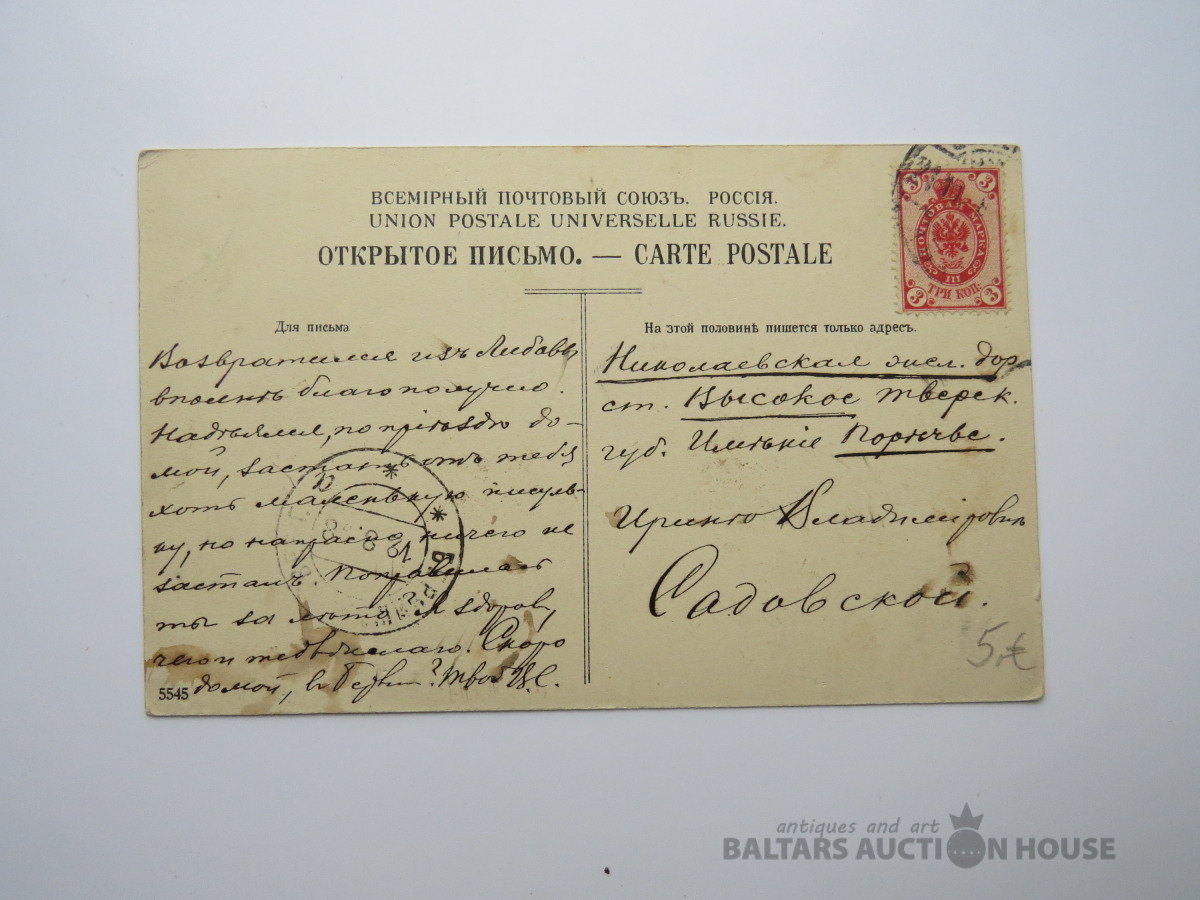 ВСЕМІРНЫЙ ПОЧТОВЫЙ СОЮЗЪ. РОССІЯ.
UNION POSTALE UNIVERSELLE RUSSIE.
ОТКРЫТОЕ ПИСЬМО. — CARTE POSTALE
3 3
ПОЧТОВАЯ МАРКА
III
ТРИ КОП.
3 3
Для письма
Возвратился изъ Либавы
вполнѣ благополучно.
Надѣялся, по пріѣздѣ до-
мой, застать отъ тебя
хоть маленькую писуль-
ку, но напрасно, ничего не
засталъ. Поправилась
ты за лѣто? Я здоровъ,
чего и тебѣ желаю. Скоро
домой, въ ? Твой
5545
На этой половинѣ пишется только адресъ.
Николаевская жел. дор
ст. Высокое Тверск.
губ. Имѣніе Порѣчье.
Иринѣ Владимировнѣ
Садовской.
5 €
antiques and art
BALTARS AUCTION HOUSE